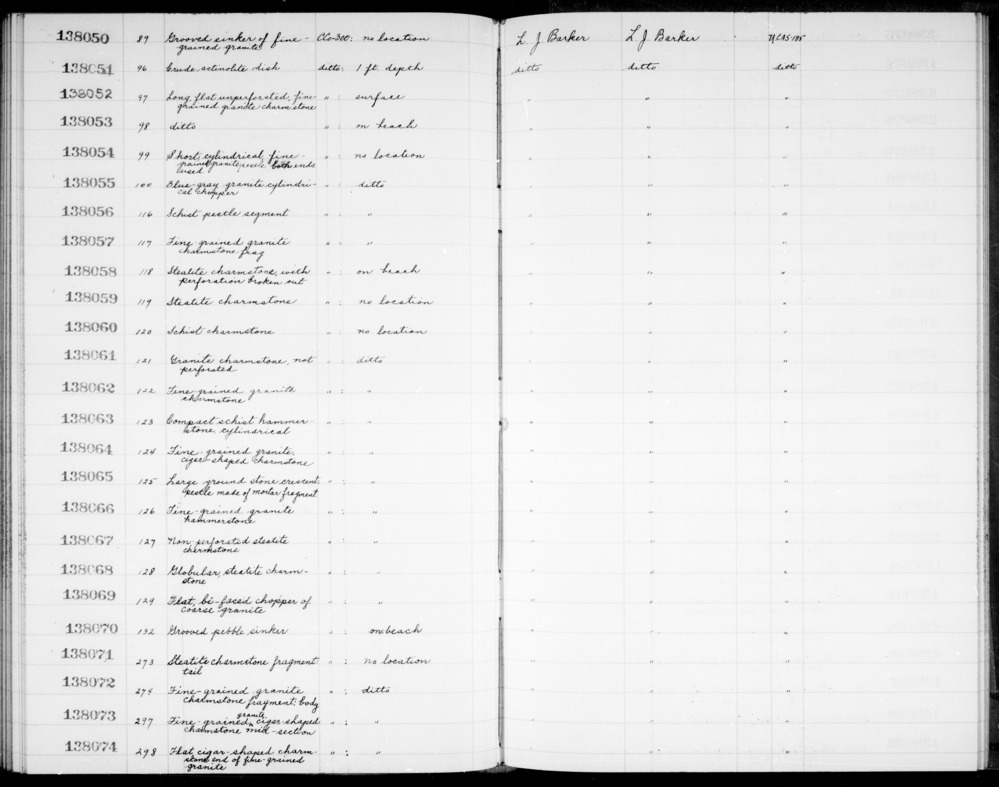 138050 89 Grooved sinker of fine- CCo-300: no location L J Barker L J Barker UCAS 185
grained granite
138051 96 Crude, actinolite dish ditto: 1 ft. depth ditto ditto ditto
138052 97 Long, flat unperforated, fine- " : surface " " "
grained granite charmstone
138053 98 ditto " : on beach " " "
138054 99 Short, cylindrical, fine- " : no location " " "
grained granite pestle both ends
used
138055 100 Blue-gray granite cylindri- " : ditto " " "
cal chopper
138056 116 Schist pestle segment " : " " " "
138057 117 Fine-grained granite " : " " " "
charmstone frag
138058 118 Steatite charmstone, with " : on beach " " "
perforation broken out
138059 119 Steatite charmstone " : no location " " "
138060 120 Schist charmstone " : no location " " "
138061 121 Granite charmstone, not " : ditto " " "
perforated
138062 122 Fine-grained granite " : " " " "
charmstone
138063 123 Compact schist hammer- " : " " " "
stone, cylindrical
138064 124 Fine-grained granite, " : " " " "
cigar-shaped charmstone
138065 125 Large ground stone crescent " : " " " "
pestle made of mortar fragment
138066 126 Fine-grained granite " : " " " "
hammerstone
138067 127 Non-perforated steatite " : " " " "
charmstone
138068 128 Globular, steatite charm- " : " " " "
stone
138069 129 Flat, bi-faced chopper of " : " " " "
coarse granite
138070 132 Grooved pebble sinker " : on beach " " "
138071 273 Steatite charmstone fragment " : no location " " "
tail
138072 274 Fine-grained granite " : ditto " " "
charmstone fragment: body
138073 297 Fine-grained granite cigar-shaped " : " " " "
charmstone mid-section
138074 298 Flat, cigar-shaped charm- " : " " " "
stone end of fine-grained
granite